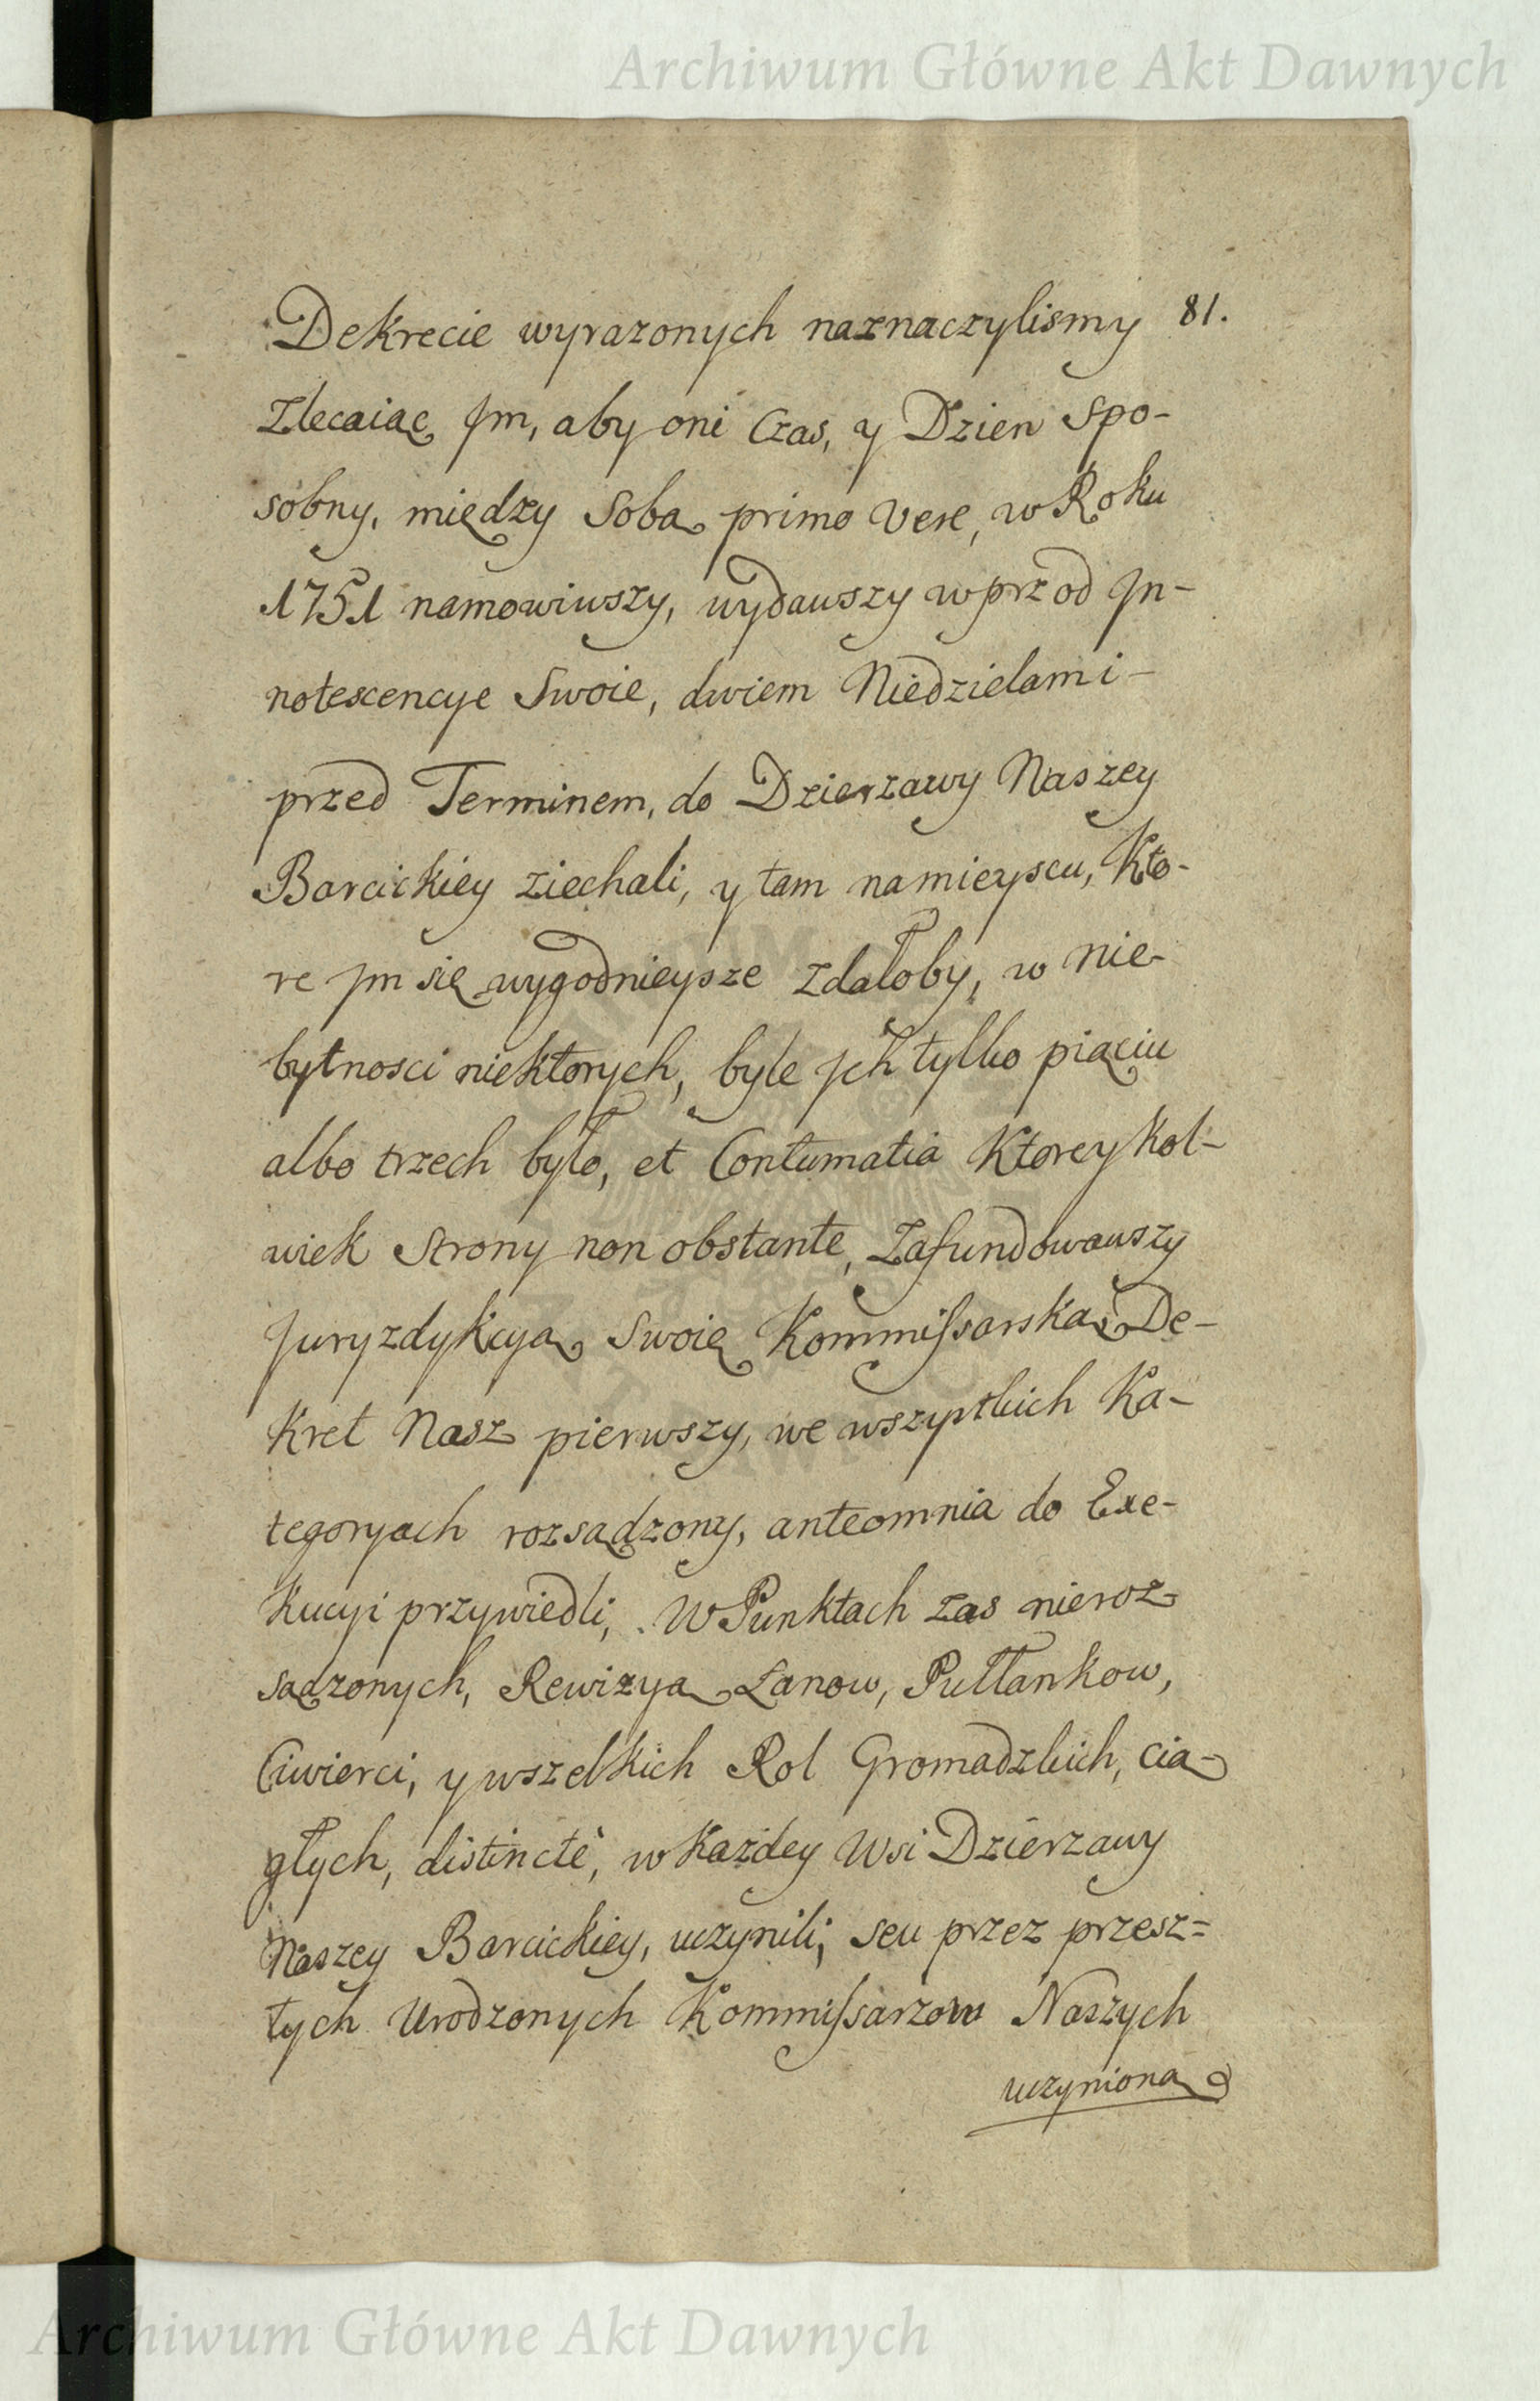 Archiwum Główne Akt Dawnych
81.
Dekrecie wyrazonych naznaczylismy
Zlecaiąc Jm, aby oni Czas, y Dzien spo-
sobny, między Sobą primo Vere, w Roku
1751 namowiwszy, wydawszy wprzod Jn-
notescencye Swoie, dwiem Niedzielami-
przed Terminem, do Dzierzawy Naszey
Barcickiey ziechali, y tam na mieyscu, Kto-
re jm się wygodnieysze zdałoby, w nie-
bytnosci niektorych, byle jch tylko piąciu
albo trzech było, et Contumatia Ktorey kol-
wiek Strony non obstante, Zafundowawszy
Juryzdykcyą Swoię Kommissarską De-
kret Nasz pierwszy, we wszystkich Ka-
tegoryach rozsądzony, anteomnia do Exe-
kucyi przywiedli, W Punktach zas nieroz-
sądzonych, Rewizyą Łanow, Pułłankow,
Cwierci, y wszelkich Rol Gromadzkich, cią-
głych, distinctè, w Każdey Wsi Dzierzawy
Naszey Barcickiey, uczynili, seu przez przesz=
łych Urodzonych Kommissarzow Naszych
uczynioną
Archiwum Główne Akt Dawnych